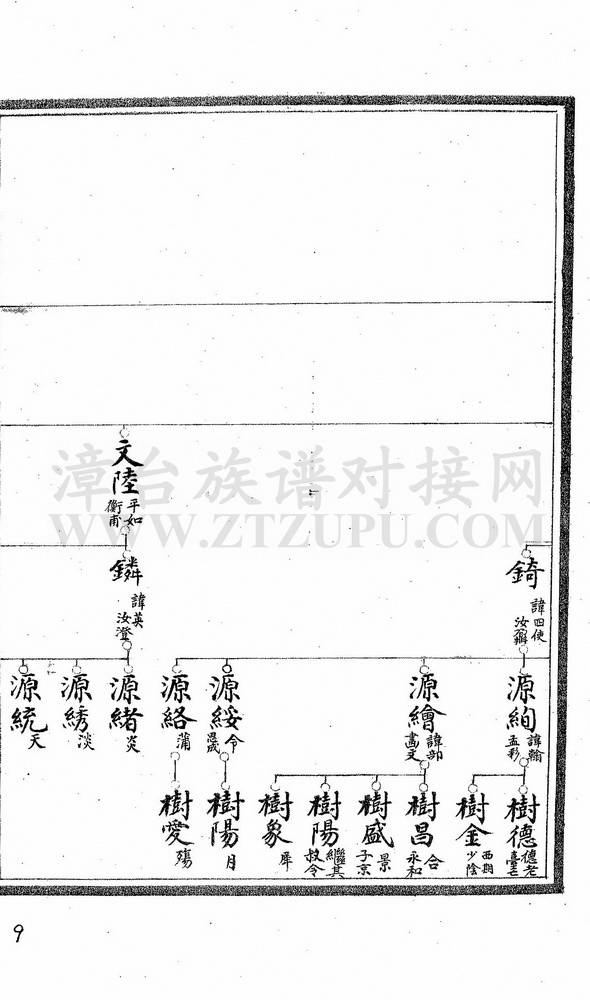 文陸
平如
衡甫
錡
諱四使
鏻
諱英
汝澄
源絢
諱翰
孟彩
源繪
諱卸
畵文
源綏
令
源絡
蒲
源緒
炎
源綉
淡
源統
天
樹德
德老
樹金
西期
少陰
樹昌
合
永和
樹盛
景
子京
樹陽
繼其
叔令
樹象
犀
樹陽
月
樹愛
殤
漳台族谱对接网
WWW.ZTZUPU.COM
9